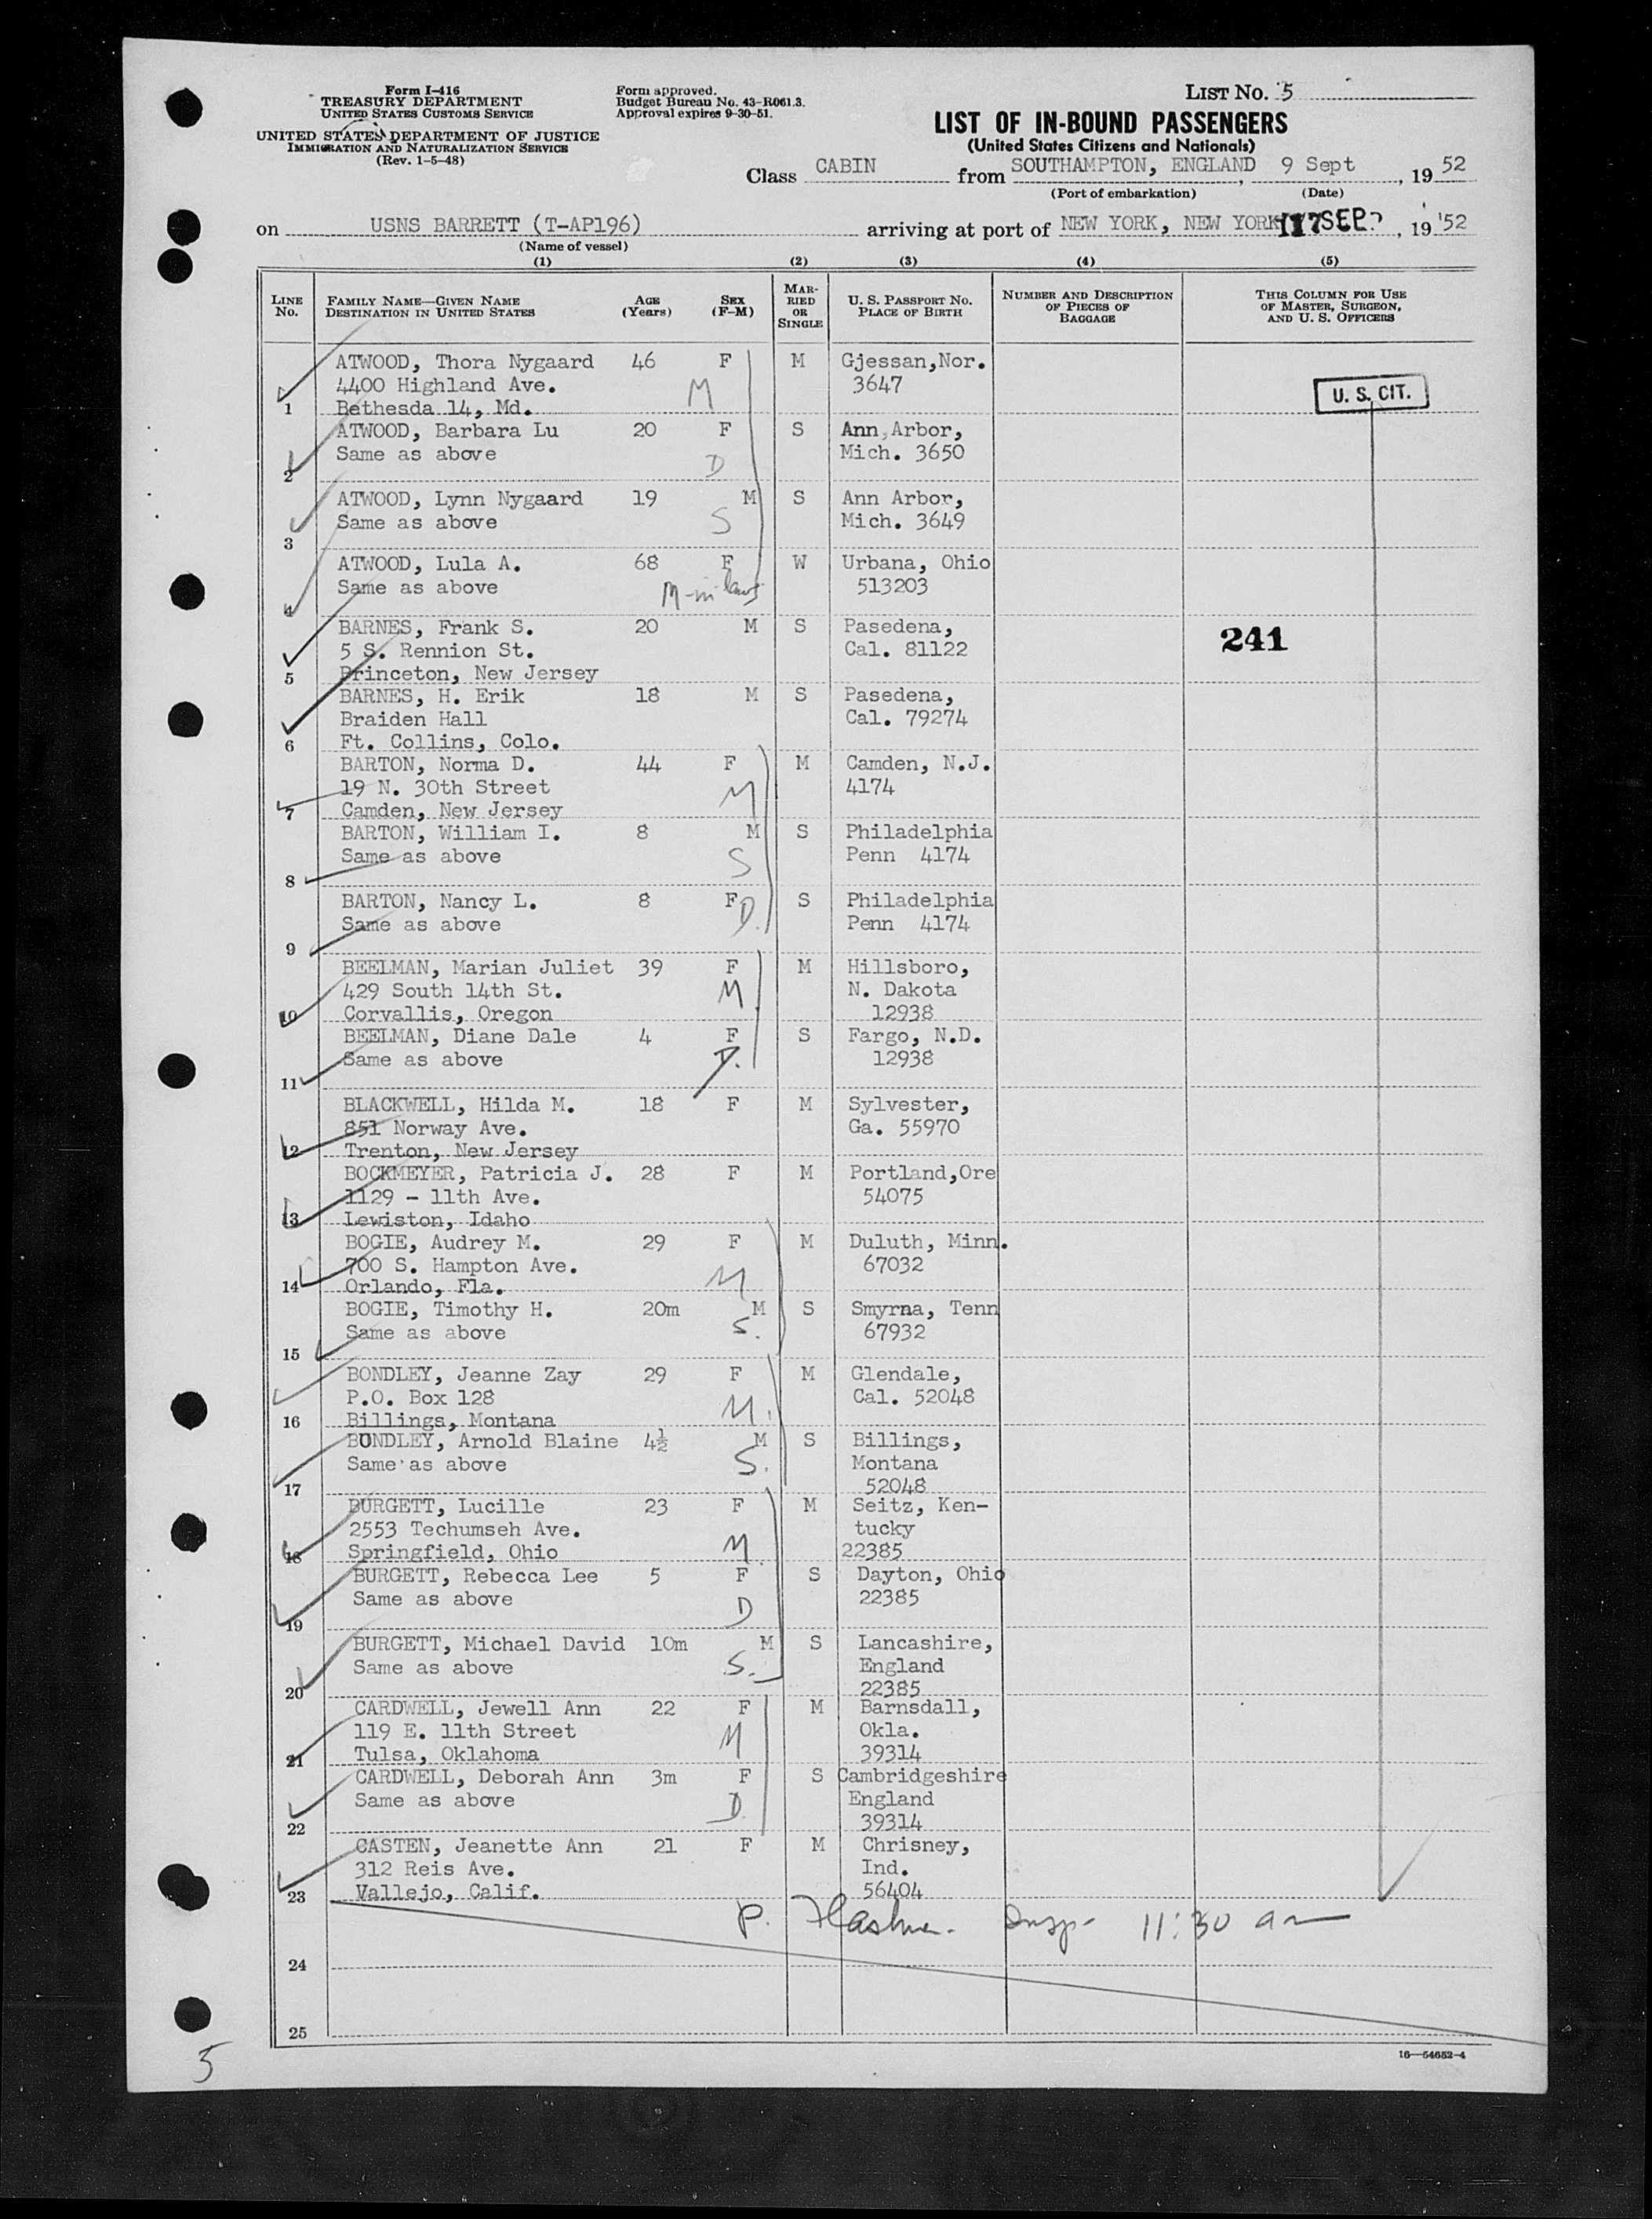 Form I-416
TREASURY DEPARTMENT
UNITED STATES CUSTOMS SERVICE
UNITED STATES DEPARTMENT OF JUSTICE
IMMIGRATION AND NATURALIZATION SERVICE
(Rev. 1-5-48)
Form approved.
Budget Bureau No. 43-R061.3.
Approval expires 9-30-51.
LIST NO. 5
LIST OF IN-BOUND PASSENGERS
(United States Citizens and Nationals)
Class CABIN from SOUTHAMPTON, ENGLAND, 9 Sept, 19 52
(Port of embarkation) (Date)
on USNS BARRETT (T-AP196) arriving at port of NEW YORK, NEW YORK 17 SEP, 19 '52
(Name of vessel)
(1) (2) (3) (4) (5)
LINE No. FAMILY NAME—GIVEN NAME DESTINATION IN UNITED STATES AGE (Years) SEX (F-M) MARRIED OR SINGLE U. S. PASSPORT NO. PLACE OF BIRTH NUMBER AND DESCRIPTION OF PIECES OF BAGGAGE THIS COLUMN FOR USE OF MASTER, SURGEON, AND U. S. OFFICERS
ATWOOD, Thora Nygaard 46 F M Gjessan,Nor.
4400 Highland Ave. M 3647 U. S. CIT.
1 Bethesda 14, Md.
ATWOOD, Barbara Lu 20 F S Ann Arbor,
Same as above D Mich. 3650
2
ATWOOD, Lynn Nygaard 19 M S Ann Arbor,
Same as above S Mich. 3649
3
ATWOOD, Lula A. 68 F W Urbana, Ohio
Same as above M-in law 513203
4
BARNES, Frank S. 20 M S Pasedena, 241
5 S. Rennion St. Cal. 81122
5 Princeton, New Jersey
BARNES, H. Erik 18 M S Pasedena,
Braiden Hall Cal. 79274
6 Ft. Collins, Colo.
BARTON, Norma D. 44 F M Camden, N.J.
19 N. 30th Street M 4174
7 Camden, New Jersey
BARTON, William I. 8 M S Philadelphia
Same as above S Penn 4174
8
BARTON, Nancy L. 8 F D. S Philadelphia
Same as above Penn 4174
9
BEELMAN, Marian Juliet 39 F M Hillsboro,
429 South 14th St. M N. Dakota
10 Corvallis, Oregon 12938
BEELMAN, Diane Dale 4 F S Fargo, N.D.
Same as above D. 12938
11
BLACKWELL, Hilda M. 18 F M Sylvester,
851 Norway Ave. Ga. 55970
12 Trenton, New Jersey
BOCKMEYER, Patricia J. 28 F M Portland,Ore
1129 - 11th Ave. 54075
13 Lewiston, Idaho
BOGIE, Audrey M. 29 F M Duluth, Minn.
700 S. Hampton Ave. M 67032
14 Orlando, Fla.
BOGIE, Timothy H. 20m M S Smyrna, Tenn
Same as above S. 67932
15
BONDLEY, Jeanne Zay 29 F M Glendale,
P.O. Box 128 M. Cal. 52048
16 Billings, Montana
BONDLEY, Arnold Blaine 4½ M S Billings,
Same as above S. Montana
17 52048
BURGETT, Lucille 23 F M Seitz, Ken-
2553 Techumseh Ave. tucky
18 Springfield, Ohio M. 22385
BURGETT, Rebecca Lee 5 F S Dayton, Ohio
Same as above D 22385
19
BURGETT, Michael David 10m M S Lancashire,
Same as above S. England
20 22385
CARDWELL, Jewell Ann 22 F M Barnsdall,
119 E. 11th Street M Okla.
21 Tulsa, Oklahoma 39314
CARDWELL, Deborah Ann 3m F S Cambridgeshire
Same as above D. England
22 39314
CASTEN, Jeanette Ann 21 F M Chrisney,
312 Reis Ave. Ind.
23 Vallejo, Calif. 56404
P. Insp- 11:30 am
24
25
16—54652-4
5